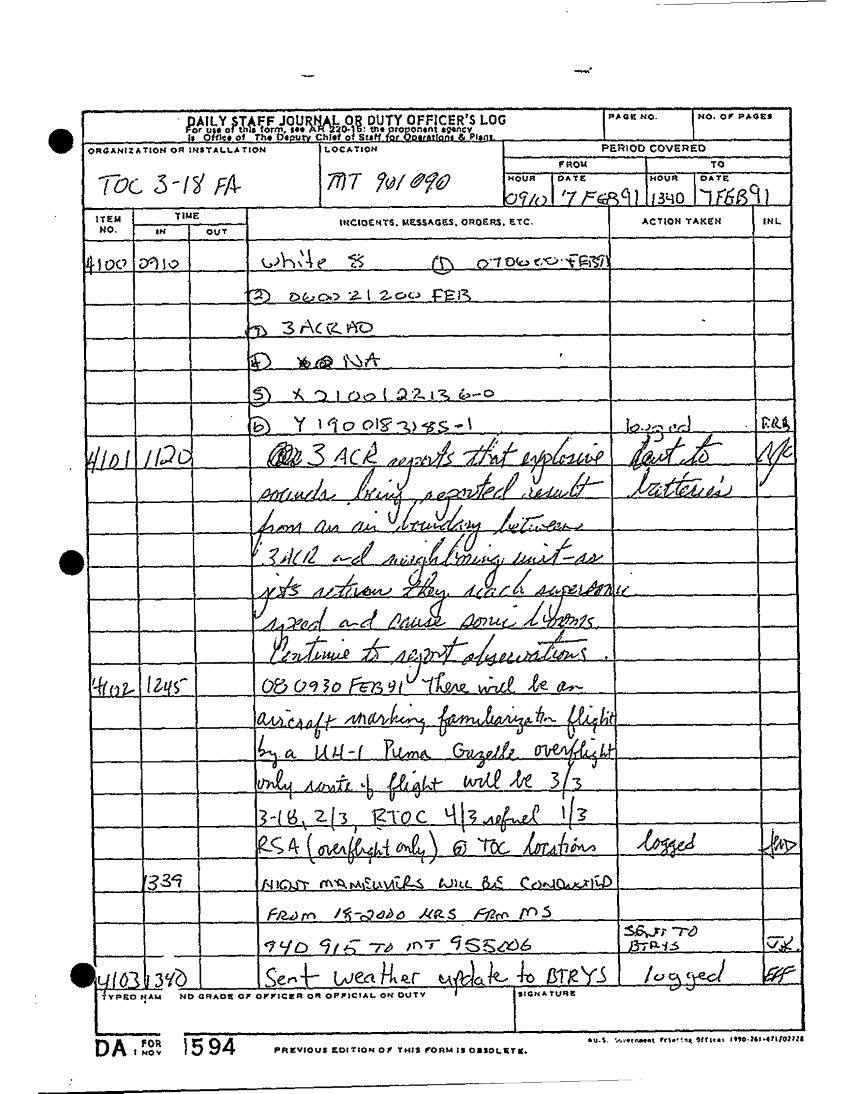 DAILY STAFF JOURNAL OR DUTY OFFICER'S LOG
For use of this form, see AR 220-15; the proponent agency
is Office of The Deputy Chief of Staff for Operations & Plans.
PAGE NO.
NO. OF PAGES
ORGANIZATION OR INSTALLATION
TOC 3-18 FA
LOCATION
MT 901090
PERIOD COVERED
FROM TO
HOUR DATE HOUR DATE
0910 7 FEB91 1340 7FEB91
ITEM NO. TIME IN OUT INCIDENTS, MESSAGES, ORDERS, ETC. ACTION TAKEN INL
4100 0910 White 8 (1) FEB91
(2) 21200 FEB
3 ACR
(4) NA
(5) X 2100122136-0
(6) Y 1900183185-1 logged
4101 1120 3 ACR reports that explosive sent to
sounds being reported result batteries
from an air boundary between
3ACR and neighboring unit-as
jets return they reach supersonic
speed and cause sonic booms.
Continue to report observations.
4102 1245 080930 FEB91 There will be an
aircraft marking familiarization flight
by a UH-1 Puma Gazelle overflight
only route of flight will be 3/3
3-18, 2/3, RTOC 4/3 refuel 1/3
RSA (overflight only) @ TOC locations logged
1339 NIGHT MANEUVERS WILL BE CONDUCTED
FROM 18-2000 HRS FRM MS
940 915 TO MT 955006 SENT TO BTRYS
4103 1340 Sent weather update to BTRYS logged
TYPED NAM ND GRADE OF OFFICER OR OFFICIAL ON DUTY
SIGNATURE
DA FOR 1 NOV 1594
PREVIOUS EDITION OF THIS FORM IS OBSOLETE.
U.S. Government Printing Office: 1990-261-871/02228